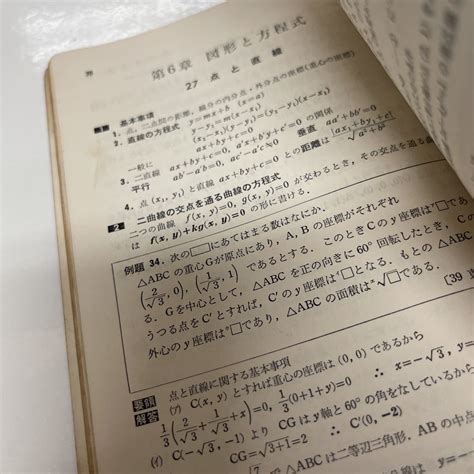 第6章 図形と方程式
27 点と直線
基本事項
1. 点，二点間の距離，線分の内分点・外分点の座標(重心の座標)
2. 直線の方程式 y=mx+b (x=a)
y-y₁=m(x-x₁)
(x₂-x₁)(y-y₁)=(y₂-y₁)(x-x₁)
一般に ax+by+c=0
3. 二直線 ax+by+c=0, a'x+b'y+c'=0 の関係
平行 ab'-a'b=0, ac'-a'c≒0 垂直 aa'+bb'=0
4. 点 (x₁, y₁) と直線 ax+by+c=0 との距離は |ax₁+by₁+c|/√a²+b²
2 二曲線の交点を通る曲線の方程式
二つの曲線 f(x, y)=0, g(x, y)=0 が交わるとき，その交点を通る曲
は f(x, y)+kg(x, y)=0 の形に書ける．
例題 34. 次の□にあてはまる数はなにか．
△ABC の重心Gが原点にあり，A, B の座標がそれぞれ
(2/√3, 0), (1/√3, 1) であるとする．このときCの y座標は ア□であ
る．Gを中心として，△ABC を正の向きに 60° 回転したとき，C
うつる点を C' とすれば，C' の y座標は イ□となる．もとの △ABC
外心の y 座標は □であり，△ABC の面積は √□である．
[39
要領 点と直線に関する基本事項
解答 (ア) C(x, y) とすれば重心の座標は (0, 0) であるから
1/3(2/√3+1/√3+x)=0, 1/3(0+1+y)=0 ∴ x=-√3, y=
(イ) C(-√3, -1) より CG は y軸と 60° の角をなしているから
CG=√3+1=2 ∴ C'(0, -2)
で △ABC は二等辺三角形．AB の中点